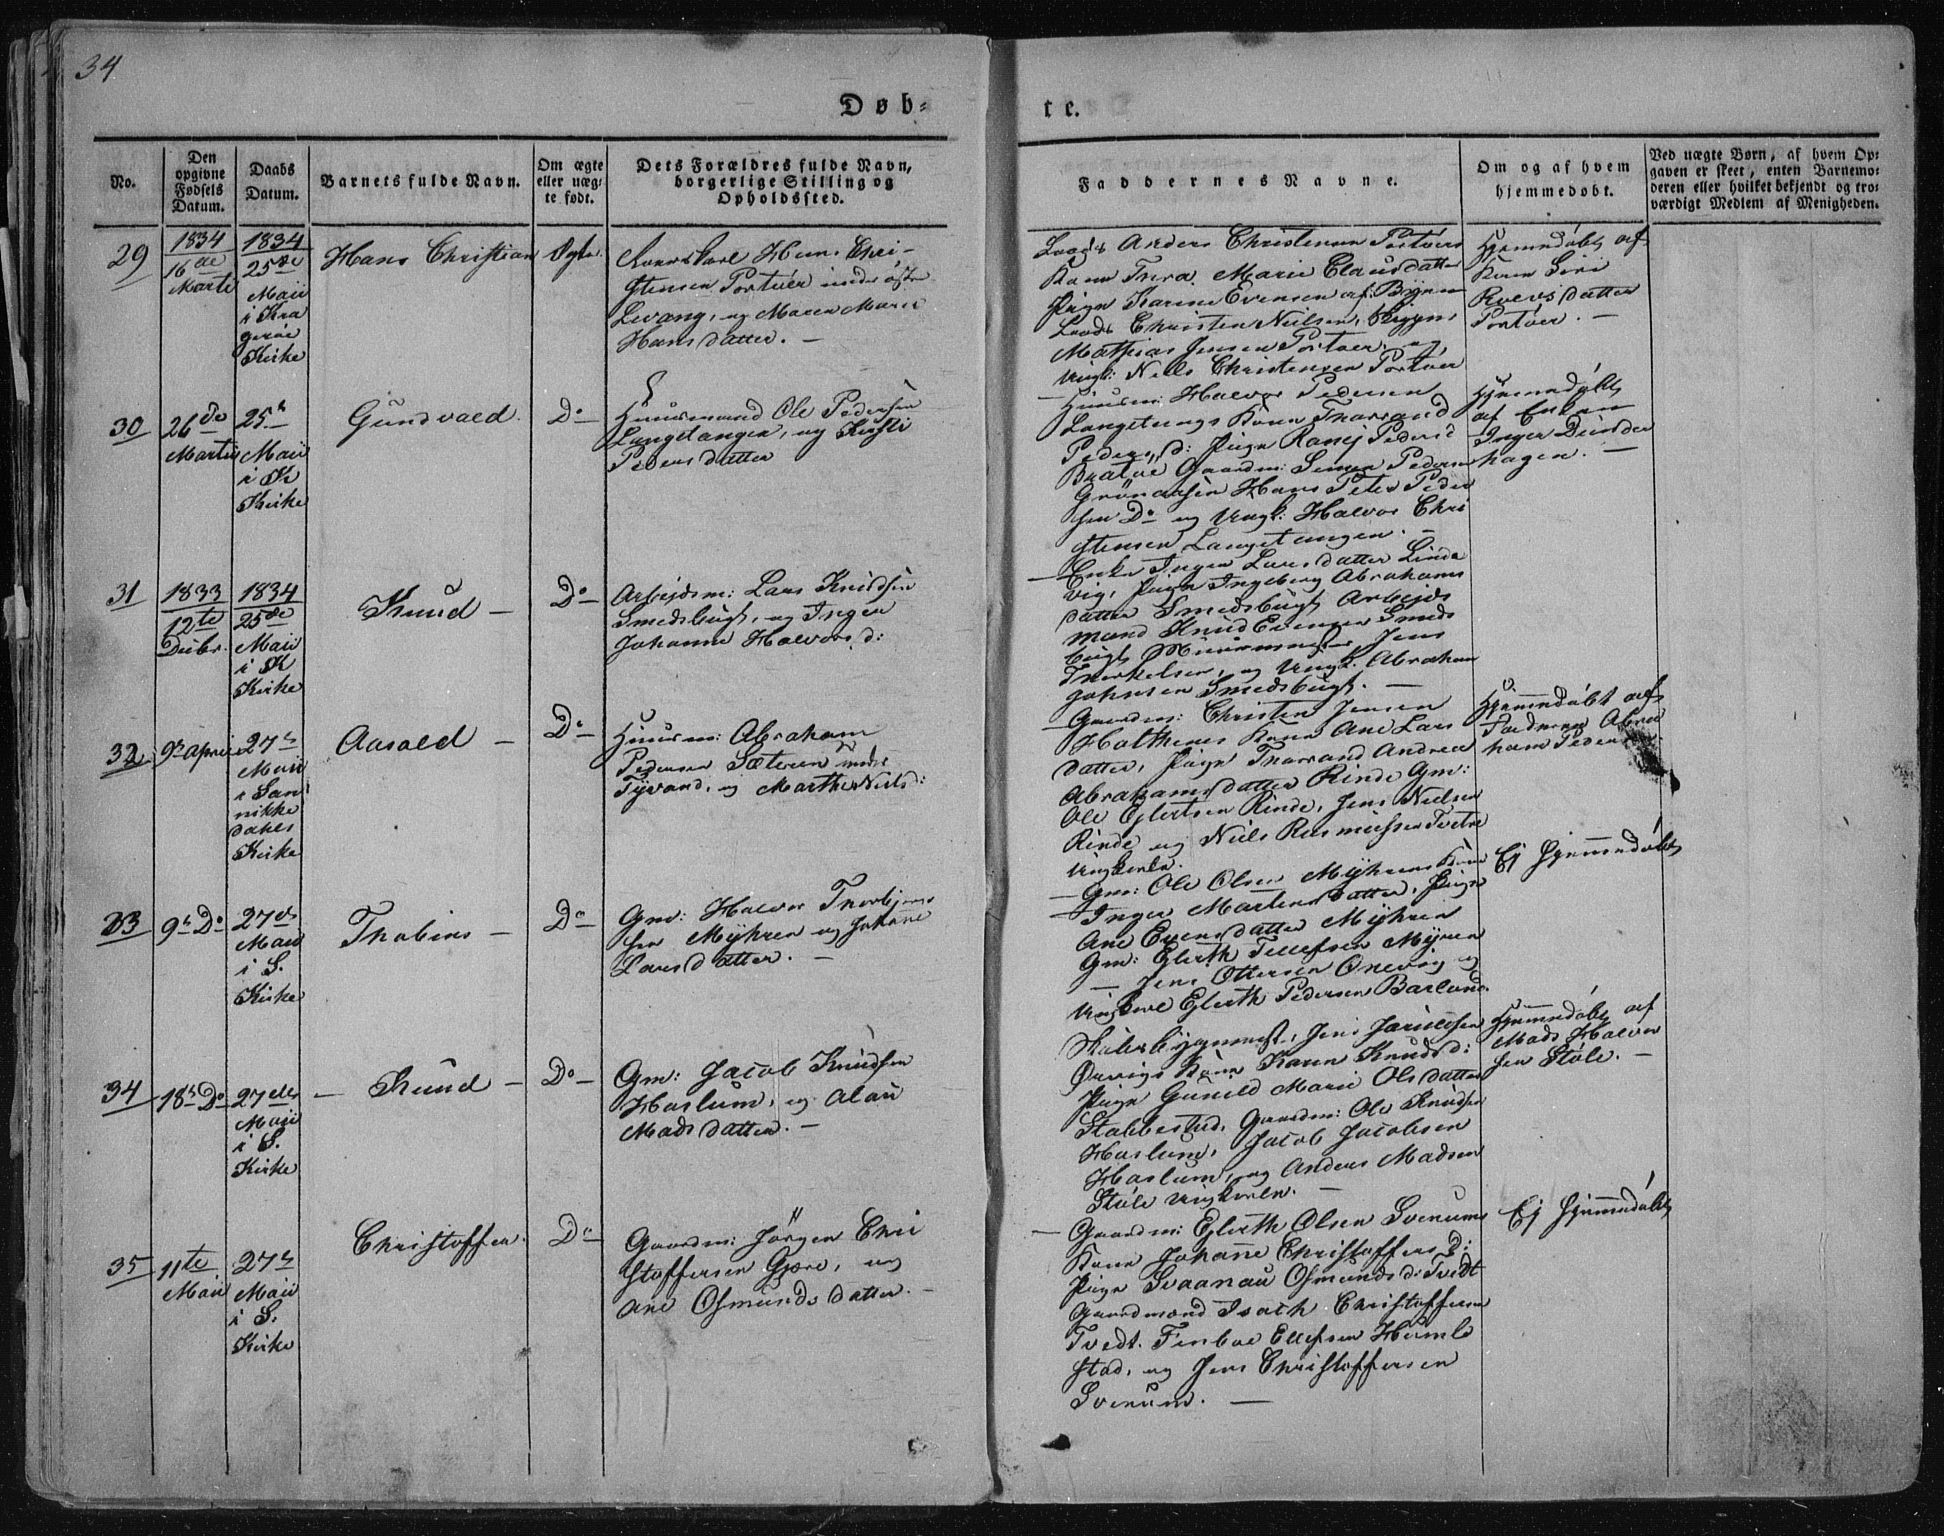 34
Døb-
te.
No.
Den opgivne Fødsels Datum.
Daabs Datum.
Barnets fulde Navn.
Om ægte eller uæg-te født.
Dets Forældres fulde Navn, borgerlige Stilling og Opholdssted.
Faddernes Navne.
Om og af hvem hjemmedøbt.
Ved uægte Børn, af hvem Op-gaven er skeet, enten Barnemo-deren eller hvilket bekjendt og tro-værdigt Medlem af Menigheden.
29
1834
16de
Marts
1834
25de
Maii
i Kra
gerøe
Kirke
Hans Christian
Ægte
Hans Chri-
stensen Portøer under
Levang, og Maren Marie
Hansdatter. —
Lods Anders Christensen Portøers
Kone Thora Marie Clausdatter
Pige Karine Evensen af Byen
Lods Christen Nielsen,
Mathias Jensen Portøer, og
Ungk: Niels Christensen Portøer
Hjemmdøbt af
Kone Siri
Roersdatter
Portøer. —
30
26de
Martii
25de
Maii
i K
Kirke
Gundvald
Do
Huusmand Ole Pedersen
Langetangen, og Kirsti
Pedersdatter
Huusm: Halvor Pedersen
Langetangs Kone Thorrand
Pedersd: Pige Ranej Pedersd
Gaardm: Simen Pedersen
Grönaasen Hans Peter Peder
sen Do og Ungk: Halvor Chri
stensen Langetangen. —
Hjemmdøbt
af Enken
Inger
hagen. —
31
1833
12te
Decbr.
1834
25de
Maii
i K
Kirke
Knud —
Do
Arbejdsm: Lars Knudsen
Smedsbugt, og Inger
Johanne Halvorsd:
Enke Inger Larsdatter Linde
vig, Pige Ingeborg Abrahams
datter Smedsbugt Arbejds
mand Knud Evensen Smeds
bugt Jens
Therkelsen, og Ungk. Abraham
Johnsen Smedsbugt. —
32
9de April
27de
Maii
i San
nikke
dahls
Kirke
Aasold —
Do
Huusm: Abraham
Pedersen Sæteren under
Tyvand, og Marthe Nielsd:
Gaardm: Christen Jensen
Holthenes Kone Ane Lars
datter, Pige Thorrand Andrea
Abrahamsdatter Rinde Gm:
Ole Eilertsen Rinde, Jens Nielsen
Rinde og Niels Rasmussen Tvetne
Ungkarle.
Hjemmdøbt af
Faderen Abra
ham Pedersen.
33
9de Do
27de
Maii
i S.
Kirke
Thobias —
Do
Gm: Halvor Thorbjørn
sen Myhren og Johane
Larsdatter. —
Gm: Ole Olsen Myhrens Kone
Inger Martensdatter, Pige
Ane Evensdatter Myhren
Gm: Ejlerth Tellefsen Myren
— Jens Ottersen Onevog og
Ungkarl Ejlerth Pedersen Barland.
Ej hjemmedøbt
34
18de Do
27de
Maii
i S.
Kirke
Knud —
Do
Gm: Jacob Knudsen
Haslum, og Alou
Madsdatter. —
Jens
Ørvigs Kone Karen Knudsd:
Pige Gunild Marie Olsdatter
Stabbestad, Gaardm: Ole Knudsen
Haslum, Jacob Jacobsen
Haslum, og Anders Madsen
Støle Ungkarle. —
Hjemmdøbt af
Mads Halvor
sen Støle. —
35
11te
Maii
27de
Maii
i S.
Kirke
Christoffer.
Do
Gaardm: Jørgen Chri
stoffersen Gjære, og
Ane Osmundsdatter. —
Gaardm: Ejlerth Olsen Svenums
Kone Johanne Christoffersd:
Pige Svaanau Osmundsd: Tvedt
Gaardmænd Isach Christoffersen
Tvedt. Finboe Ellefsen Humle
stad, og Jens Christoffersen
Svenum. —
Ej hjemmedøbt